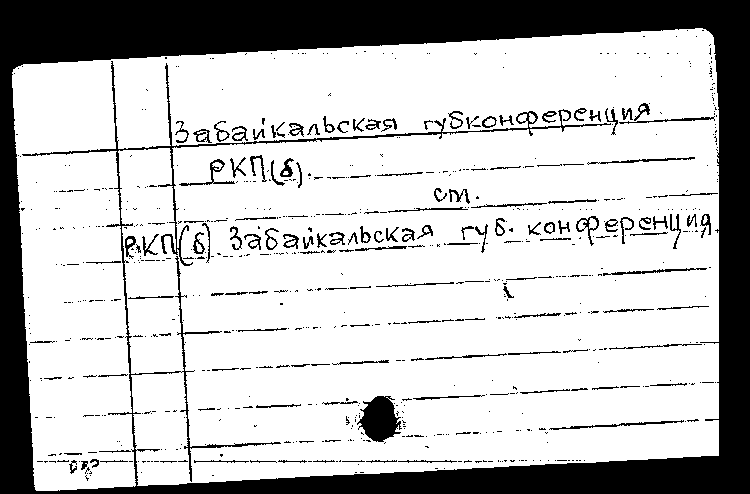 Забайкальская губконференция
РКП(б).
ст.
РКП(б) Забайкальская губ. конференция.